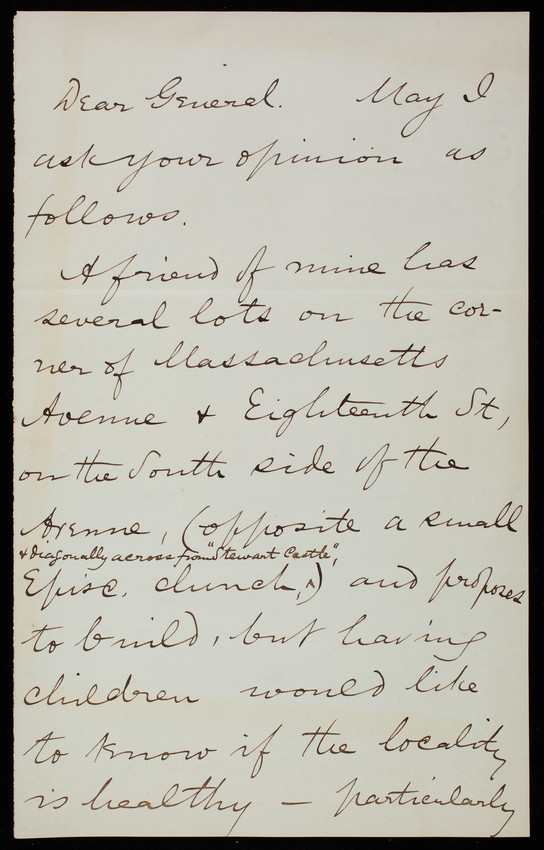 Dear General. May I
ask your opinion as
follows.
A friend of mine has
several lots on the cor-
ner of Massachusetts
Avenue & Eighteenth St,
on the South side of the
Avenue, (opposite a small
& diagonally across from "Stewart Castle",
Episc. church, ^) and proposes
to build, but having
children would like
to know if the locality
is healthy — particularly